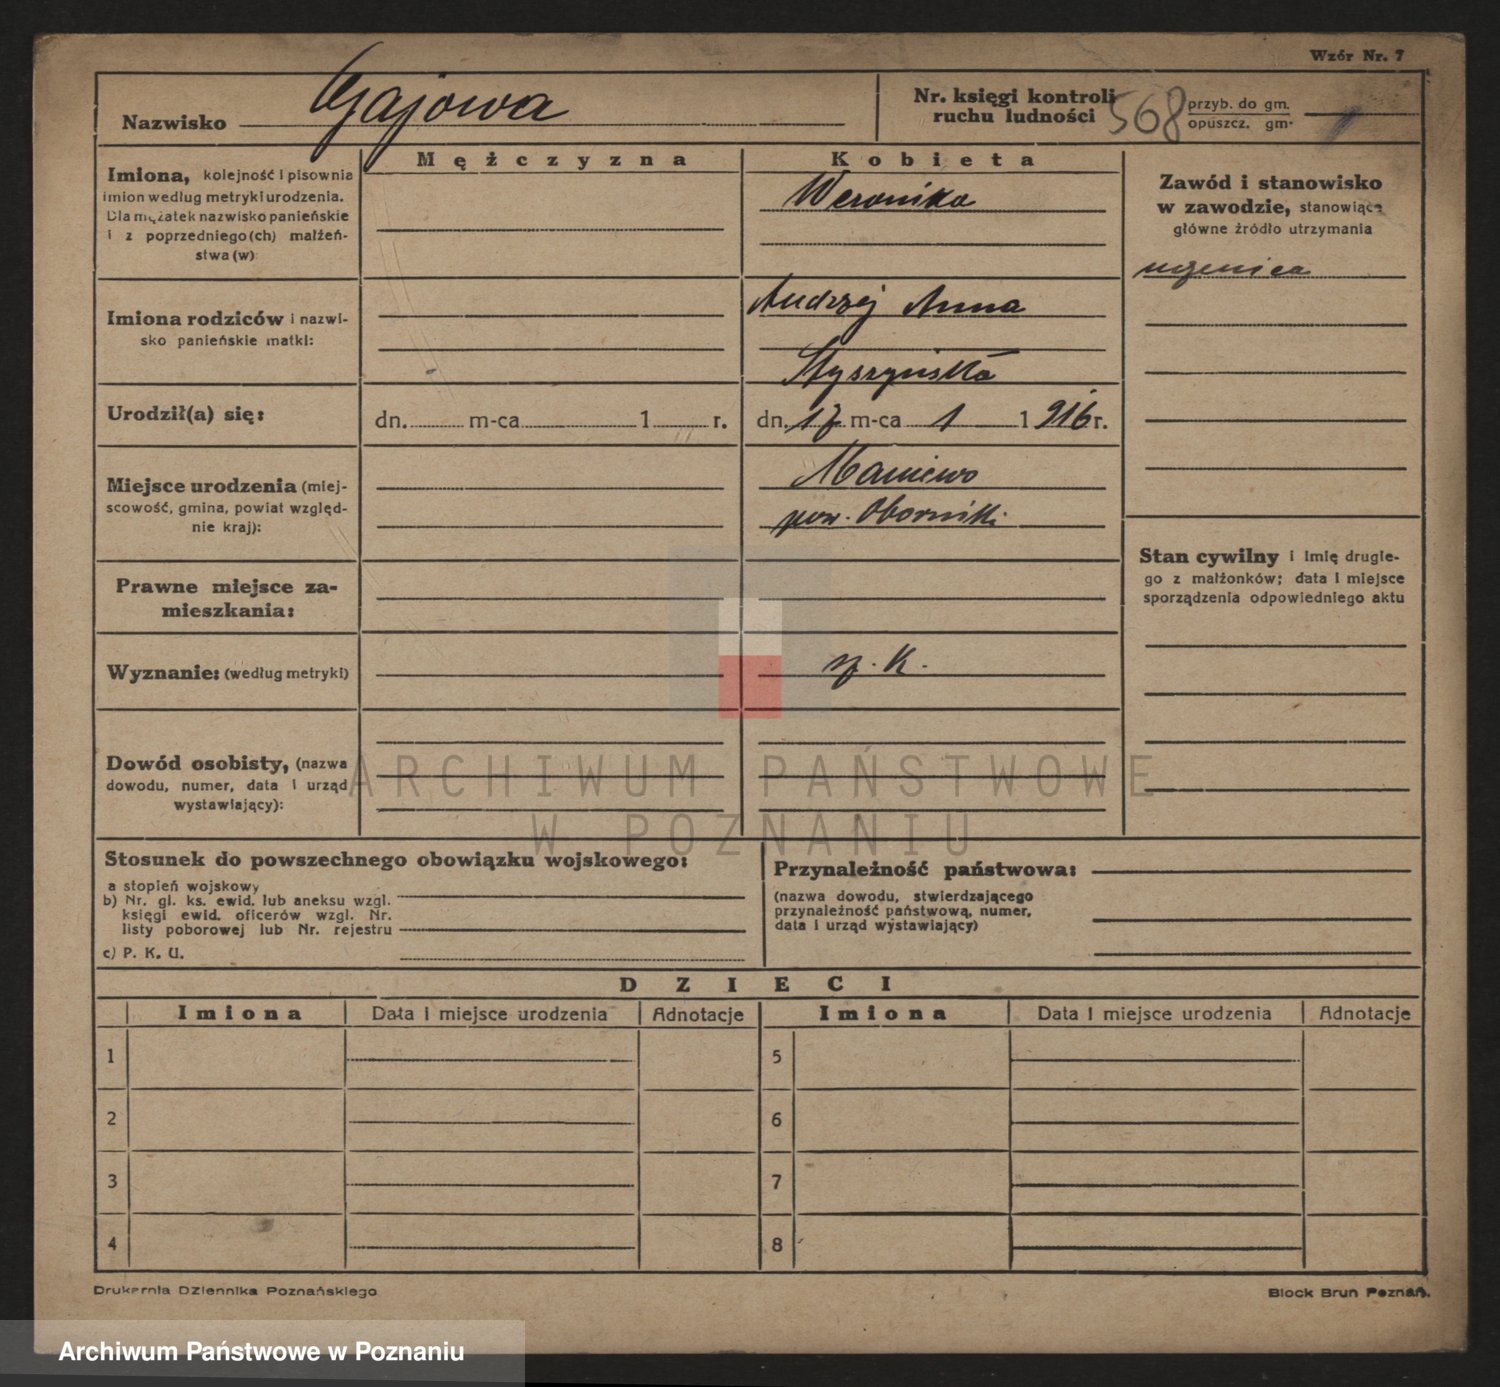 Wzór Nr. 7
Nazwisko Gajowa
Nr. księgi kontroli ruchu ludności 568 przyb. do gm. opuszcz. gm.
Mężczyzna
Kobieta
Imiona, kolejność i pisownia
imion według metryki urodzenia.
Dla mężatek nazwisko panieńskie
i z poprzedniego(ch) małżeń-
stwa(w)
Weronika
Zawód i stanowisko
w zawodzie, stanowiące
główne źródło utrzymania
uczenica
Imiona rodziców i nazwi-
sko panieńskie matki:
Andrzej Anna
Urodził(a) się:
dn. m-ca 1 r.
dn. 17 m-ca 1 1916 r.
Miejsce urodzenia (miej-
scowość, gmina, powiat względ-
nie kraj):
Maniewo
pow. Oborniki
Stan cywilny i imię drugie-
go z małżonków; data i miejsce
sporządzenia odpowiedniego aktu
Prawne miejsce za-
mieszkania:
Wyznanie: (według metryki)
rz. k.
Dowód osobisty, (nazwa
dowodu, numer, data i urząd
wystawiający):
ARCHIWUM PAŃSTWOWE
W POZNANIU
Stosunek do powszechnego obowiązku wojskowego:
a stopień wojskowy
b) Nr. gł. ks. ewid. lub aneksu wzgl.
księgi ewid. oficerów wzgl. Nr.
listy poborowej lub Nr. rejestru
c) P. K. U.
Przynależność państwowa:
(nazwa dowodu, stwierdzającego
przynależność państwową, numer,
data i urząd wystawiający)
DZIECI
Imiona Data i miejsce urodzenia Adnotacje Imiona Data i miejsce urodzenia Adnotacje
1 5
2 6
3 7
4 8
Drukarnia Dziennika Poznańskiego
Block Brun Poznań.
Archiwum Państwowe w Poznaniu